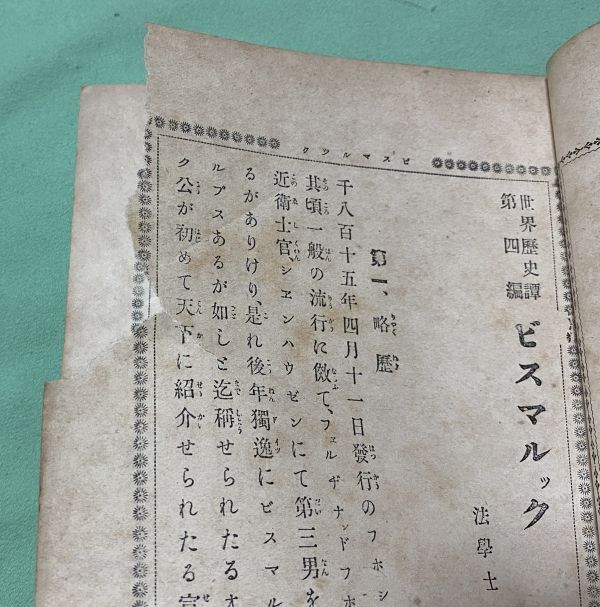 ビスマルック
世界歷史譚
第四編
ビスマルック
法學士
第一、略歷
千八百十五年四月十一日發行のフホシ
其頃一般の流行に傚て、フェルヂナンドフホ
近衛士官、シエンハウゼンにて第三男を
るがありけり、是れ後年獨逸にビスマル
ルプスあるが如しと迄稱せられたるオ
ク公が初めて天下に紹介せられたる